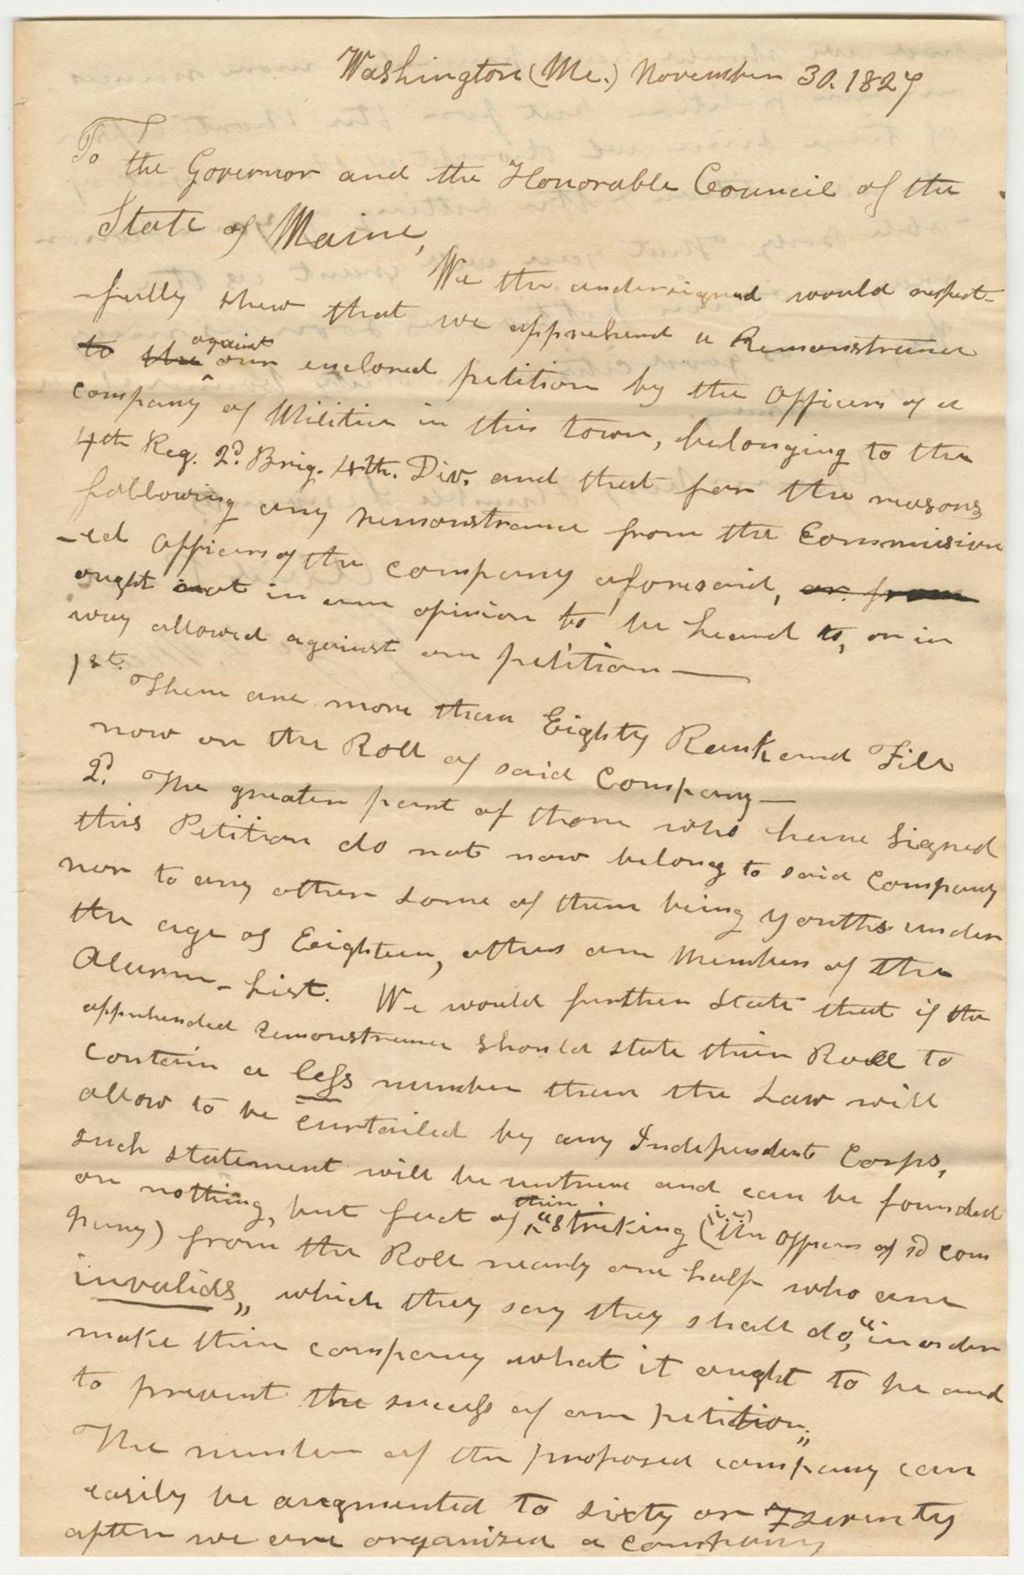 Washington (Me.) November 30. 1827
To
the Governor and the Honorable Council of the
State of Maine,
We the undersigned would respect-
-fully shew that we apprehend a Remonstrance
to the against our enclosed petition by the Officers of a
company of Militia in this town, belonging to the
4th Reg. 2d. Brig. 4th. Div. and that for the reasons
following any remonstrance from the Commission
-ed Officers of the company aforesaid, or from
ought not in our opinion to be heard to, or in
way allowed against our petition—
1st. There are more than Eighty Rank and File
now on the Roll of said Company—
2d. The greater part of those who have Signed
this Petition do not now belong to said Company
nor to any other some of them being youths under
the age of Eighteen, others are Members of the
Alarm-List. We would further State that if the
apprehended remonstrance should state their Roll to
contain a less number than the Law will
allow to be curtailed by any Independent Corps,
such statement will be untrue and can be founded
on nothing, but fact of their "Striking (i.e.) (the Officers of sd com
pany) from the Roll nearly one half who are
invalids,, which they say they shall do, "in order
make their company what it ought to be and
to prevent the success of our petition,,
The number of the proposed company can
easily be augmented to sixty or Seventy
after we are organized a company